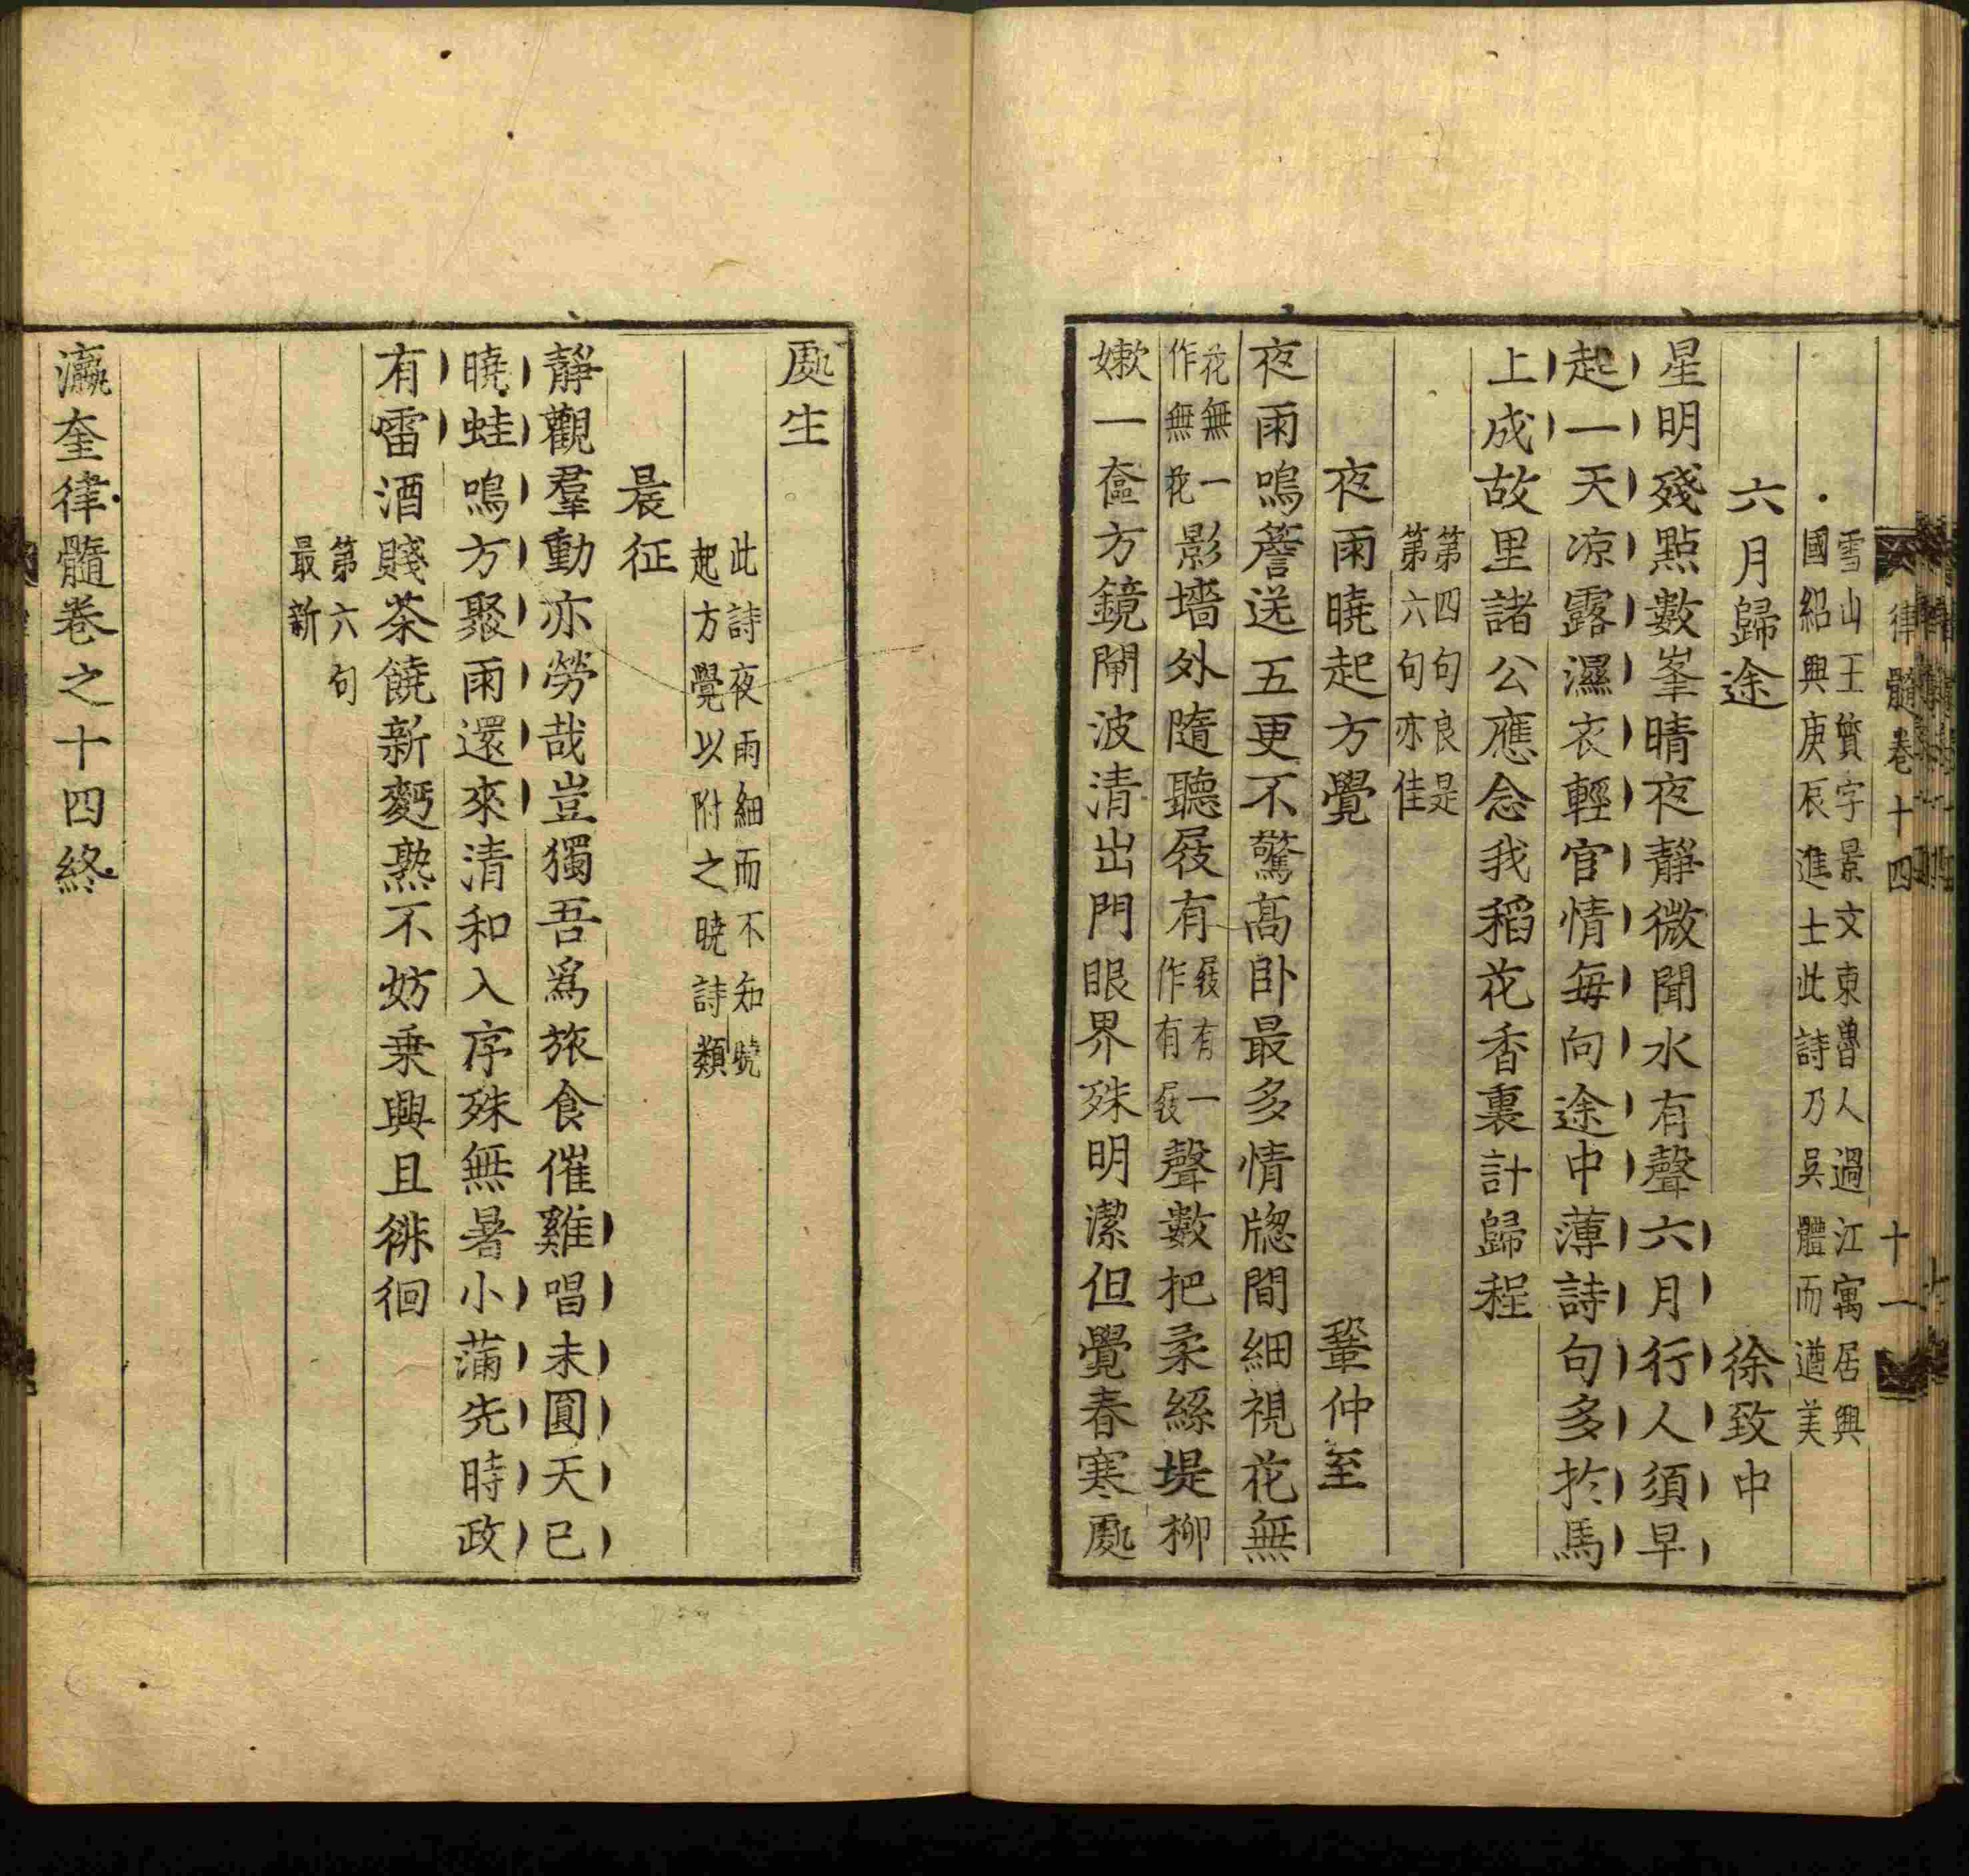 律髓卷十四
十一
雪山王質字景文東魯人過江寓居興
國紹興庚辰進士此詩乃吳體而遒美
六月歸途
徐致中
星明殘點數峯晴夜靜微聞水有聲六月行人須早
起一天凉露濕衣輕官情每向途中薄詩句多於馬
上成故里諸公應念我稻花香裏計歸程
第四句良是
第六句亦佳
夜雨曉起方覺
鞏仲至
夜雨鳴簷送五更不驚高卧最多情牎間細視花無
花無一
作無花
影墻外隨聽屐有
屐有一
作有屐
聲數把柔絲堤柳
嫰一奩方鏡閘波清出門眼界殊明潔但覺春寒䖏
䖏生
此詩夜雨細而不知曉
起方覺以附之曉詩類
晨征
靜觀羣動亦勞哉豈獨吾爲旅食催雞唱未圓天已
曉蛙鳴方聚雨還來清和入序殊無暑小滿先時政
有雷酒賤茶饒新麫熟不妨乗興且徘徊
第六句
最新
瀛奎律髓卷之十四終